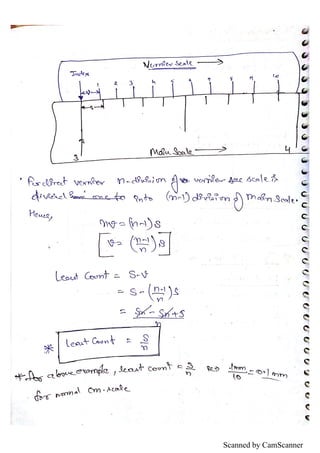 Vernier scale
Index
1 2 3 4 5 6 7 8 9 10
v
s
3 Main Scale 4
For direct vernier n-division of vernier scale is
divided into (n-1) division of Main Scale.
Hence,
nv = (n-1)S
[v = (n-1/n) S]
Least Count = S-V
= S - (n-1/n) S
= Sn - Sn + S / n
* Least Count = S/n
* For above example, least count = S/n ⇒ 1mm/10 = 0.1mm
for normal cm-scale
Scanned by CamScanner